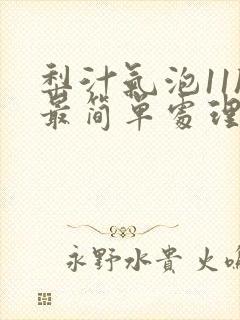 梨汁氣泡11
最简單處理
永野水貴 火鳴